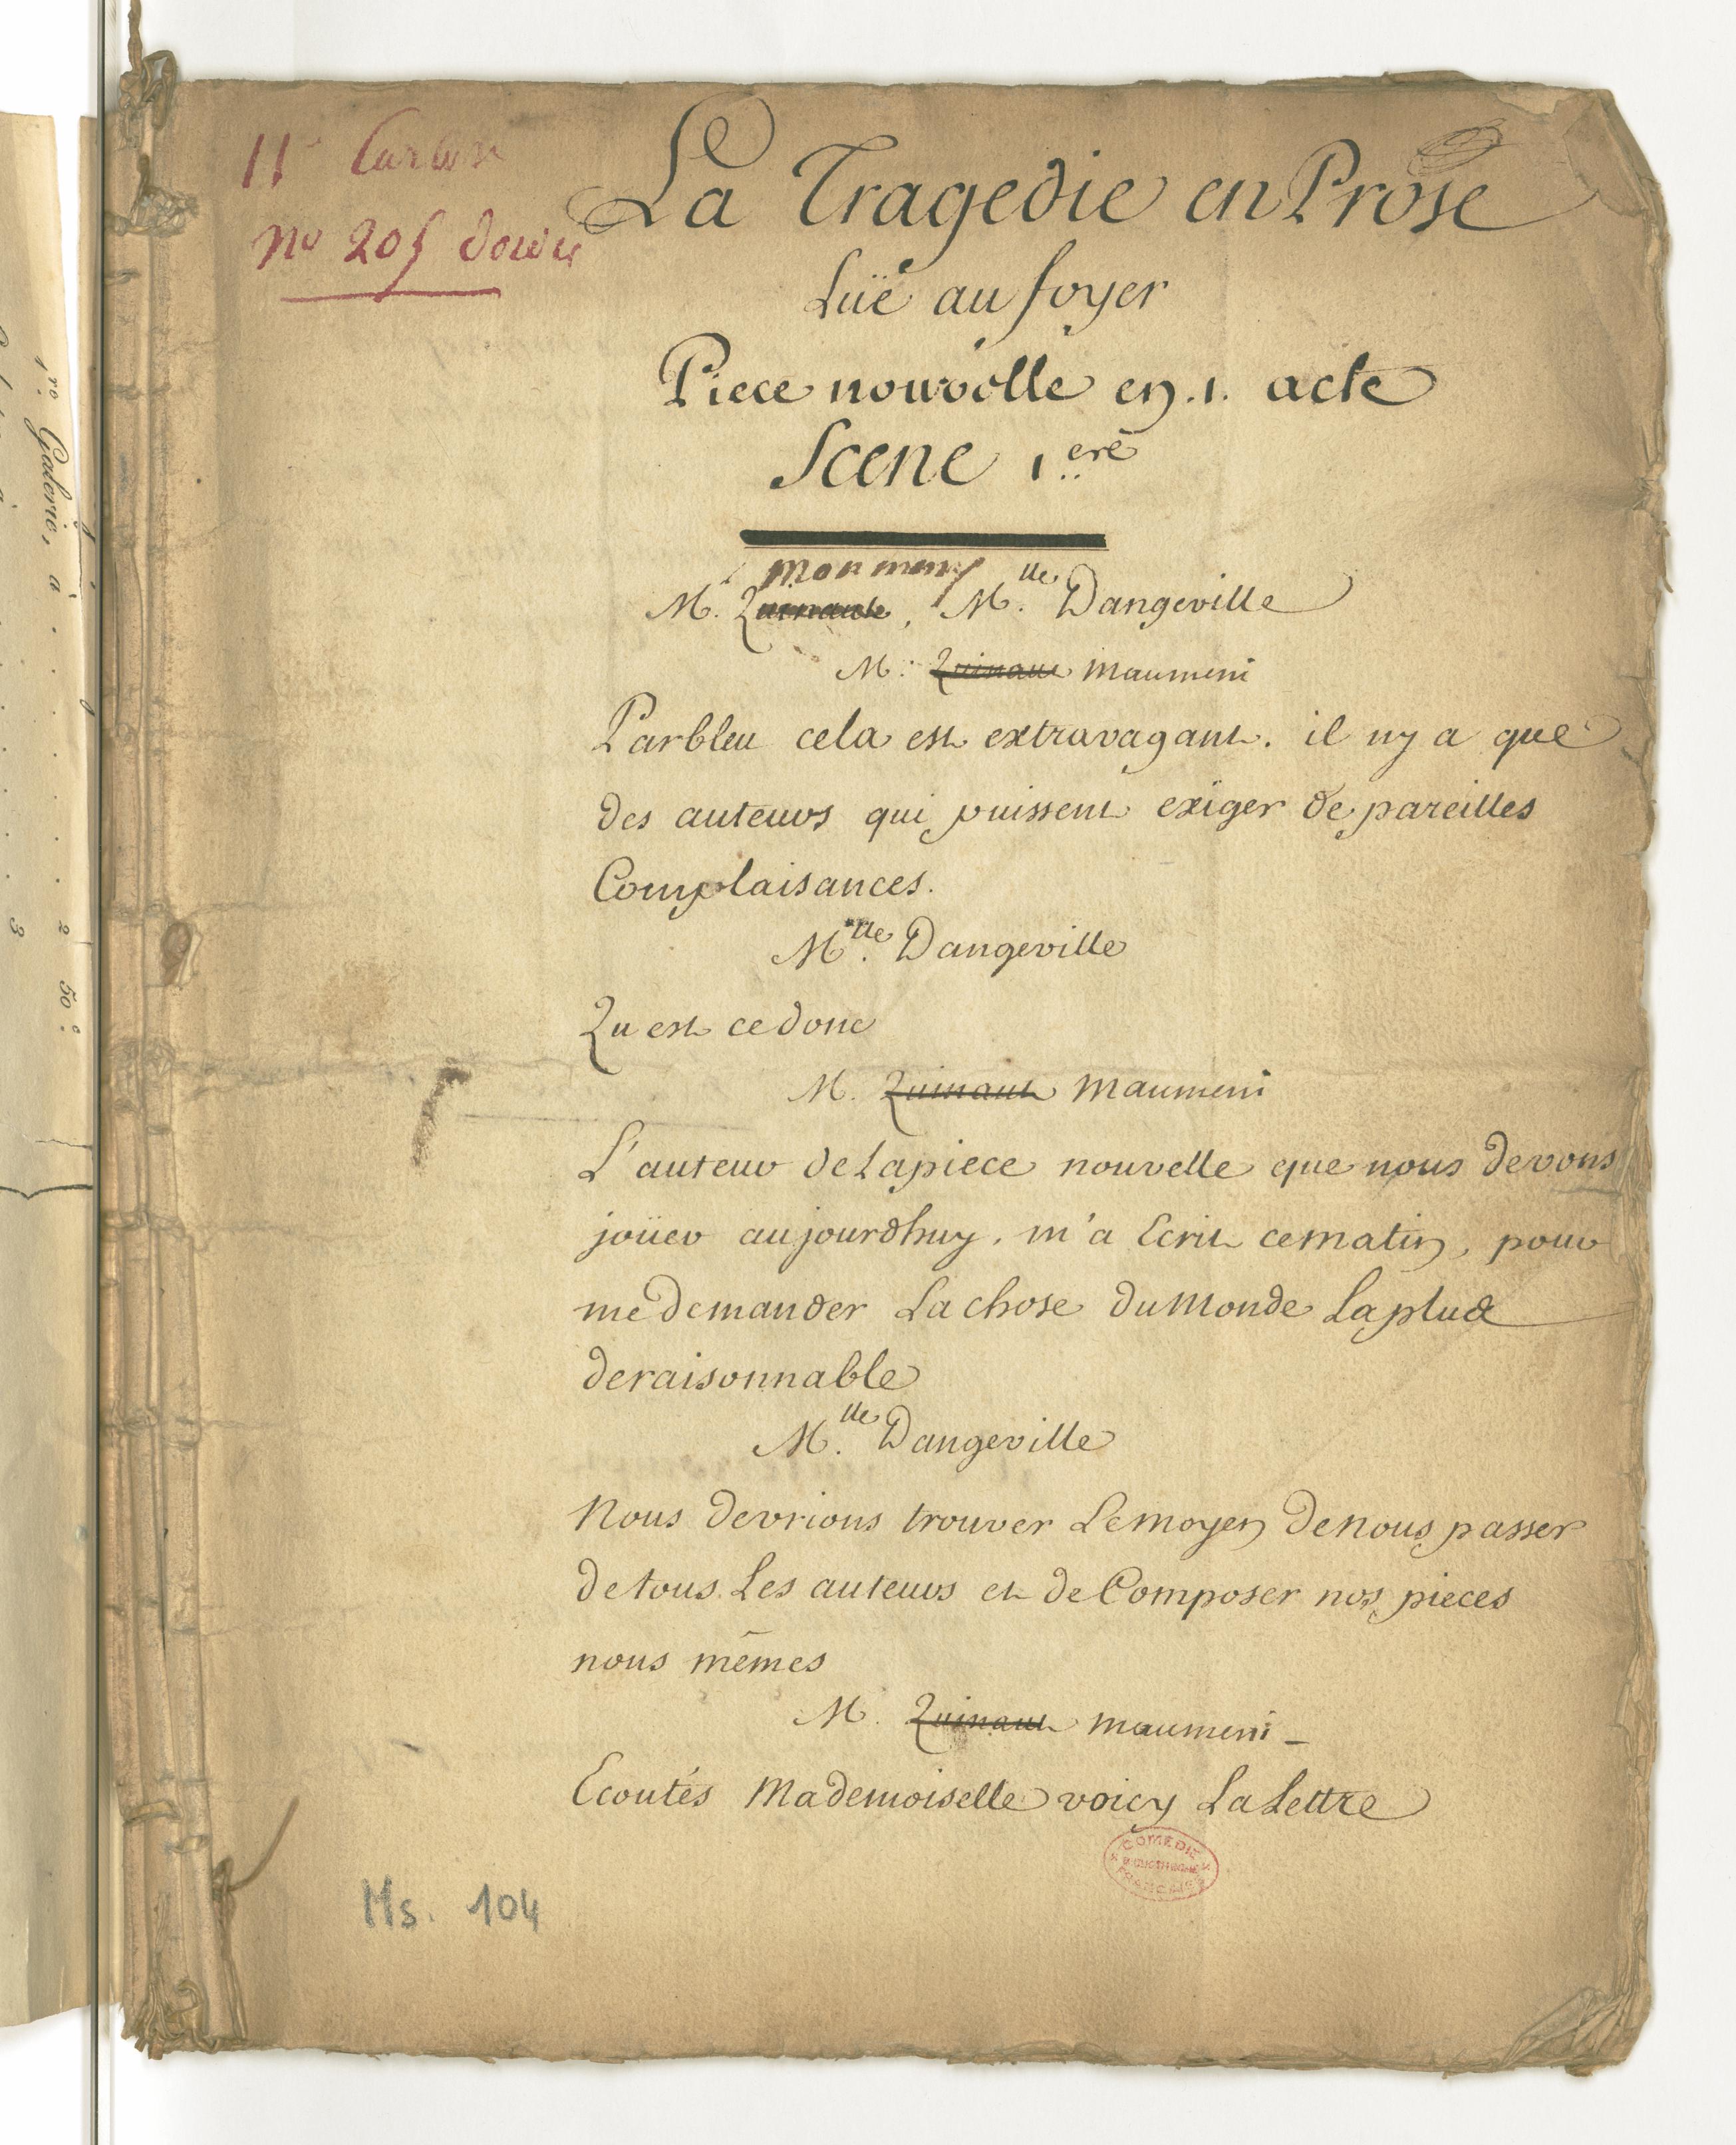 11e Carton
La Tragedie en Prose
no 205
Lüe au foyer
Piece nouvelle en .1. acte
Scene 1.ere
Monmeny
M. Quinault, M.lle Dangeville
M. Quinault Maumeni
Parbleu cela est extravagant. il ny a que
des auteurs qui puissent exiger de pareilles
Complaisances.
M.lle Dangeville
Qu est ce donc
M. Quinault Maumeni
L'auteur de La piece nouvelle que nous devons
joüer aujourdhuy. m'a Ecrit ce matin, pour
me demander La chose du monde La plus
deraisonnable
M.lle Dangeville
Nous devrions trouver Le moyen de nous passer
de tous Les auteurs et de Composer nos pieces
nous mêmes
M. Quinault Maumeni -
Ecoutés Mademoiselle voicy La Lettre
COMEDIE FRANCAISE BIBLIOTHEQUE
Ms. 104
1re Galerie, à . . . 2 50c
3